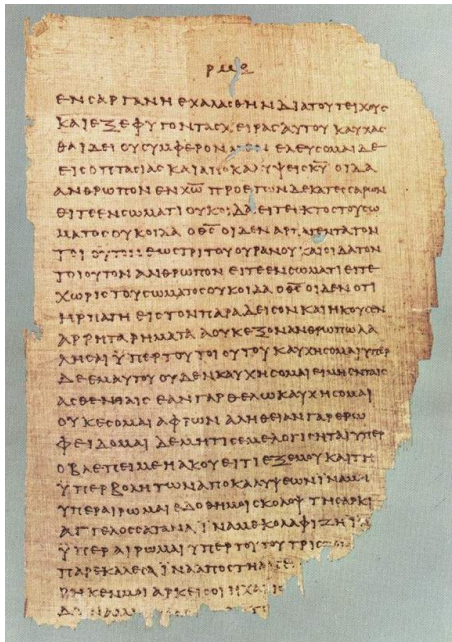 ΕΝ ΣΑΡΓΑΝΗ ΕΧΑΛΑΣΘΗΝ ΔΙΑ ΤΟΥ ΤΕΙΧΟΥΣ
ΚΑΙ ΕΞΕΦΥΓΟΝ ΤΑΣ ΧΕΙΡΑΣ ΑΥΤΟΥ ΚΑΥΧΑΣ
ΘΑΙ ΔΕΙ ΟΥ ΣΥΜΦΕΡΟΝ ΕΛΕΥΣΟΜΑΙ ΔΕ
ΕΙΣ ΟΠΤΑΣΙΑΣ ΚΑΙ ΑΠΟΚΑΛΥΨΕΙΣ Κ̅Υ̅ ΟΙΔΑ
ΑΝΘΡΩΠΟΝ ΕΝ Χ̅Ω̅ ΠΡΟ ΕΤΩΝ ΔΕΚΑΤΕΣΣΑΡΩΝ
ΕΙΤΕ ΕΝ ΣΩΜΑΤΙ ΟΥΚ ΟΙΔΑ ΕΙΤΕ ΕΚΤΟΣ ΤΟΥ ΣΩ
ΜΑΤΟΣ ΟΥΚ ΟΙΔΑ Ο Θ̅Σ̅ ΟΙΔΕΝ ΑΡΠΑΓΕΝΤΑ ΤΟΝ
ΤΟΙΟΥΤΟΝ ΕΩΣ ΤΡΙΤΟΥ ΟΥΡΑΝΟΥ ΚΑΙ ΟΙΔΑ ΤΟΝ
ΤΟΙΟΥΤΟΝ ΑΝΘΡΩΠΟΝ ΕΙΤΕ ΕΝ ΣΩΜΑΤΙ ΕΙΤΕ
ΧΩΡΙΣ ΤΟΥ ΣΩΜΑΤΟΣ ΟΥΚ ΟΙΔΑ Ο Θ̅Σ̅ ΟΙΔΕΝ ΟΤΙ
ΗΡΠΑΓΗ ΕΙΣ ΤΟΝ ΠΑΡΑΔΕΙΣΟΝ ΚΑΙ ΗΚΟΥΣΕΝ
ΑΡΡΗΤΑ ΡΗΜΑΤΑ Α ΟΥΚ ΕΞΟΝ ΑΝΘΡΩΠΩ ΛΑ
ΛΗΣΑΙ ΫΠΕΡ ΤΟΥ ΤΟΙΟΥΤΟΥ ΚΑΥΧΗΣΟΜΑΙ ΥΠΕΡ
ΔΕ ΕΜΑΥΤΟΥ ΟΥΔΕΝ ΚΑΥΧΗΣΟΜΑΙ ΕΙ ΜΗ ΕΝ ΤΑΙΣ
ΑΣΘΕΝΕΙΑΙΣ ΕΑΝ ΓΑΡ ΘΕΛΩ ΚΑΥΧΗΣΟΜΑΙ
ΟΥΚ ΕΣΟΜΑΙ ΑΦΡΩΝ ΑΛΗΘΕΙΑΝ ΓΑΡ ΕΡΩ
ΦΕΙΔΟΜΑΙ ΔΕ ΜΗ ΤΙΣ ΕΜΕ ΛΟΓΙΣΗΤΑΙ ΥΠΕΡ
Ο ΒΛΕΠΕΙ ΜΕ Η ΑΚΟΥΕΙ ΤΙ ΕΞ ΕΜΟΥ ΚΑΙ ΤΗ
ΫΠΕΡΒΟΛΗ ΤΩΝ ΑΠΟΚΑΛΥΨΕΩΝ ΙΝΑ ΜΗ
ΥΠΕΡΑΙΡΩΜΑΙ ΕΔΟΘΗ ΜΟΙ ΣΚΟΛΟΨ ΤΗ ΣΑΡΚΙ
ΑΓΓΕΛΟΣ ΣΑΤΑΝΑ ΪΝΑ ΜΕ ΚΟΛΑΦΙΖΗ ΙΝΑ
ΫΠΕΡΑΙΡΩΜΑΙ ΥΠΕΡ ΤΟΥΤΟΥ ΤΡΙΣ
ΠΑΡΕΚΑΛΕΣΑ ΪΝΑ ΑΠΟΣΤΗ
ΡΗΚΕΝ ΜΟΙ ΑΡΚΕΙ ΣΟΙ Η ΧΑΡΙΣ